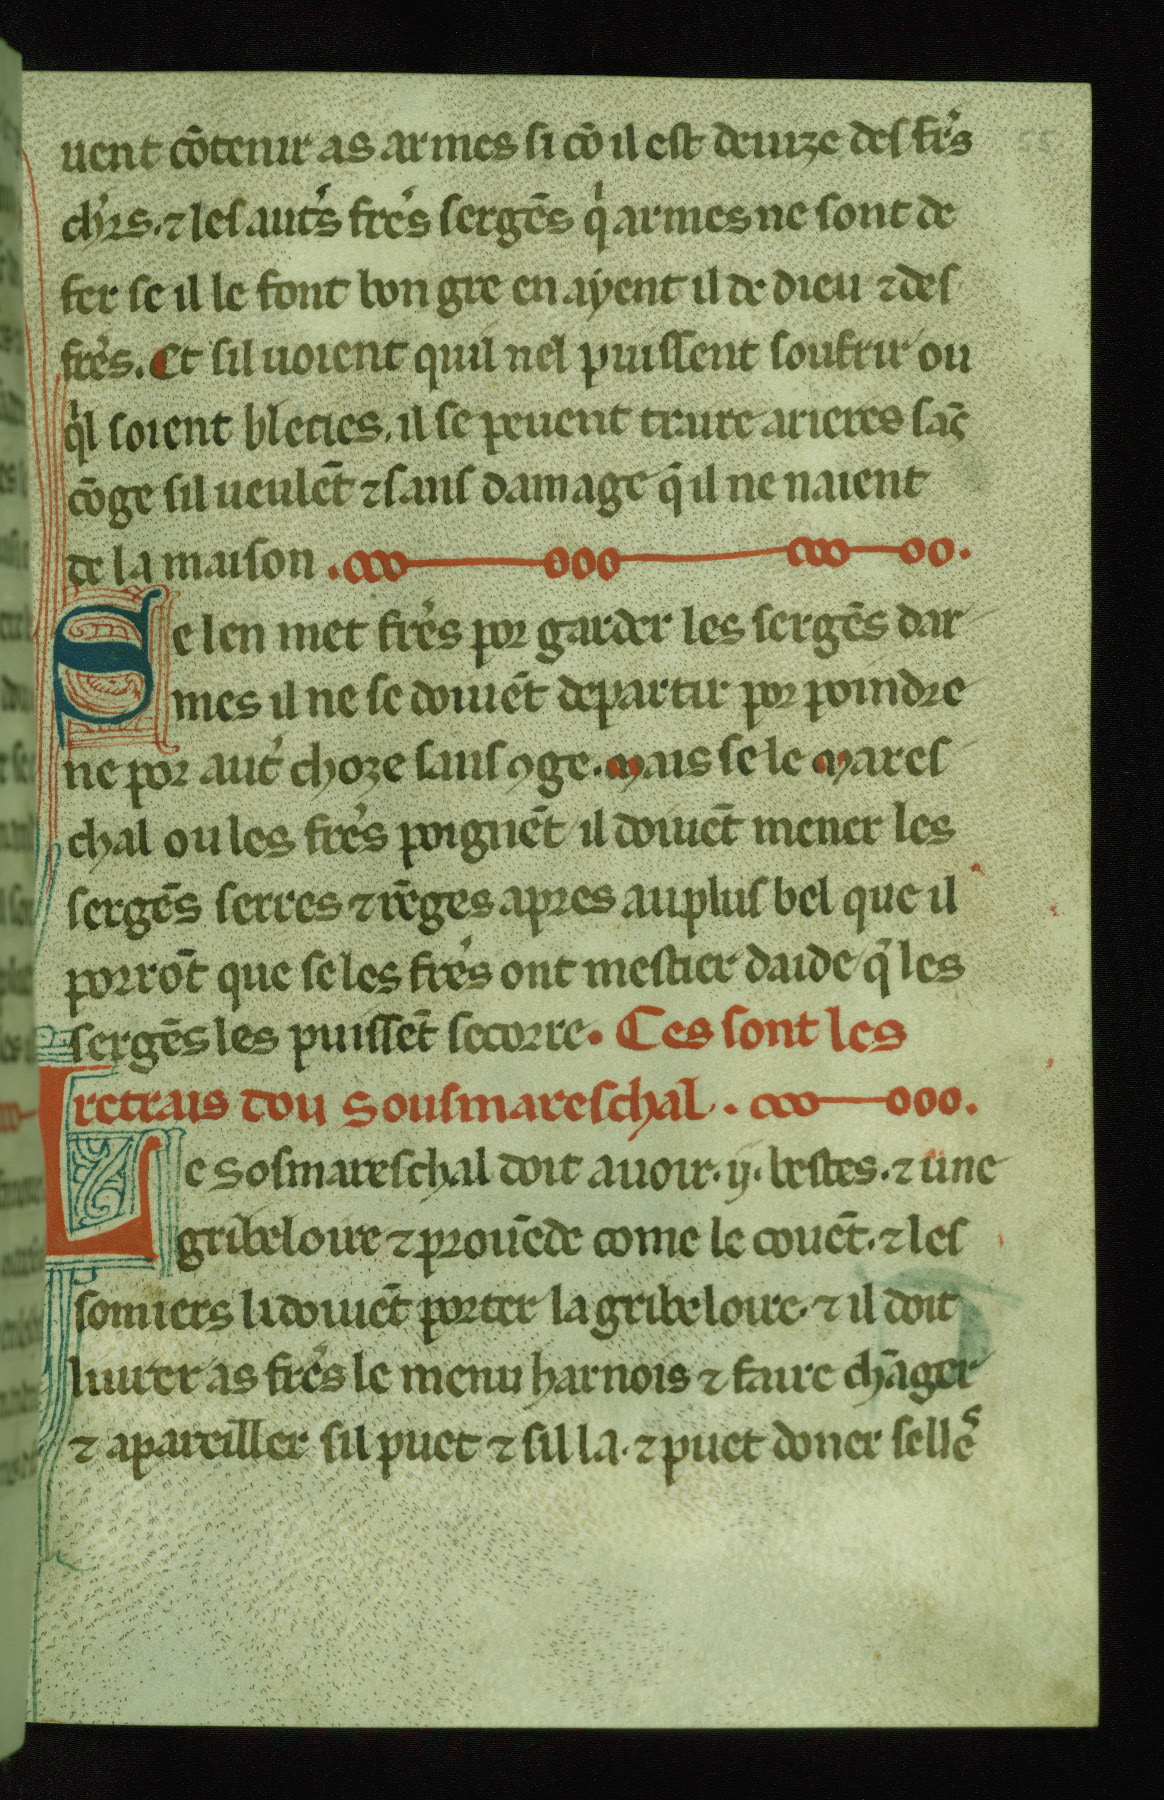 uent cõtenir as armes si cõ il est deuize des fr̃s
ch'rs. ⁊ les autr̃s frẽs sergẽs q̇ armes ne sont de
fer se il le font bon gre en ayent il de dieu ⁊ des
frẽs. Et sil uoient quil nel puissent soufrir ou
q̇l soient blecies. il se peuent traire arieres sãs
cõge sil ueulẽt ⁊ sans damage q̃ il ne naient
de la maison.
Se len met frẽs por garder les sergẽs dar
mes il ne se doiuẽt departir por poindre
ne por autr̃ choze sans ꝯge. Mais se le Mares
chal ou les frẽs poignẽt il doiuẽt mener les
sergẽs serres ⁊ rẽges apres au plus bel que il
porrõt que se les frẽs ont mestier daide q̃ les
sergẽs les puissẽt secorre. Ces sont les
retrais dou Sousmareschal.
Le Sosmareschal doit auoir .ij. bestes. ⁊ une
gribeloire ⁊ prouẽde come le couẽt. ⁊ les
somiers li doiuẽt porter la gribeloire. ⁊ il doit
liurer as frẽs le menu harnois ⁊ faire chãger
⁊ apareiller sil puet ⁊ sil la. ⁊ puet doner sellẽs